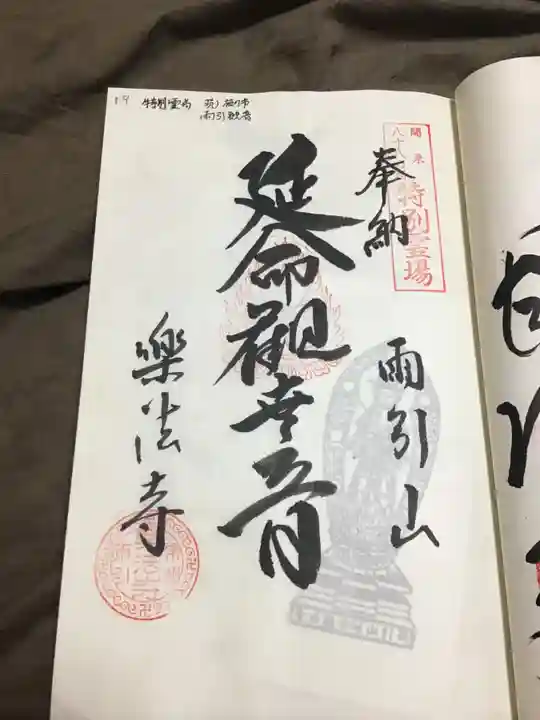 特別霊場
雨引観音
関東
八十八
特別霊場
奉納
雨引山
延命觀世音
樂法寺